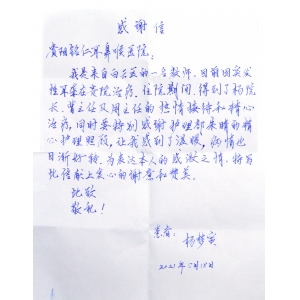 感谢信
贵阳铭仁耳鼻喉医院：
我是来自白云区的一名教师。目前因突发
性耳聋在贵院治疗。住院期间，得到了杨院
长、曾主任及周主任的热情接待和精心
治疗，同时要特别感谢护理部朱晴的精
心护理照顾，让我感到了温暖，病情也
日渐好转。为表达本人的感激之情，特写
此信献上衷心的谢意和赞美。
此致
敬礼！
患者：
杨梦寅
2021年